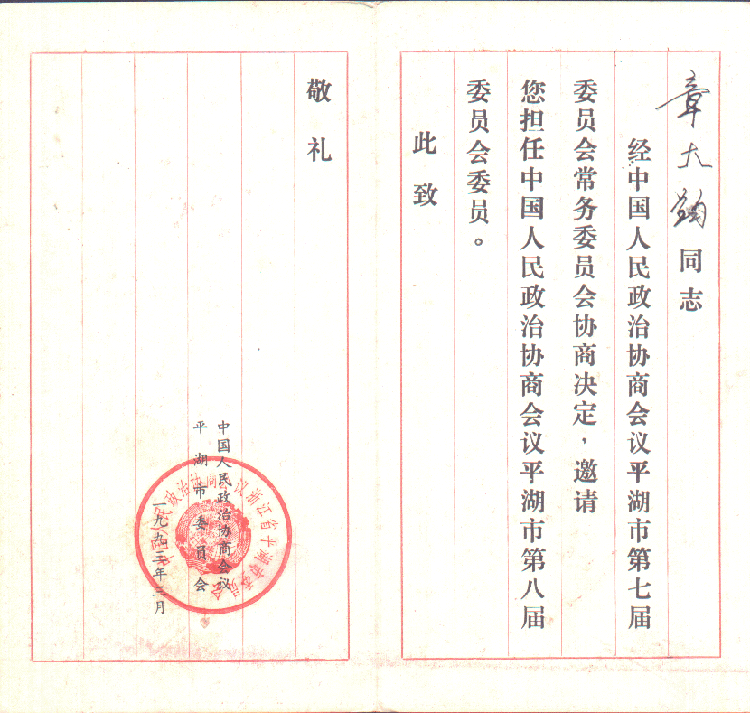 章大 同志
经中国人民政治协商会议平湖市第七届
委员会常务委员会协商决定，邀请
您担任中国人民政治协商会议平湖市第八届
委员会委员。
此致
敬礼
中国人民政治协商会议
平湖市委员会
一九九三年三月
中国人民政治协商会议浙江省平湖市委员会